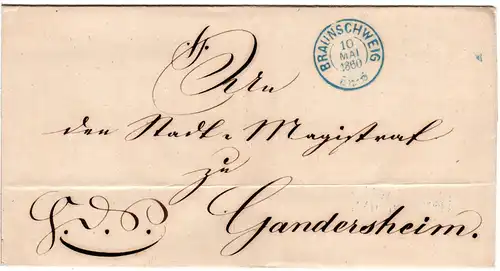 fr.
BRAUNSCHWEIG
10
MAI
1880
An
den Stadt-Magistrat
zu
H. d. S. Gandersheim.